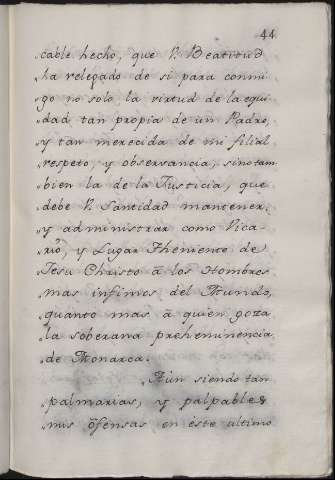 44
cable hecho, que V. Beatitud
„ha relegado de si para conmi„
„go no solo la virtud de la equi„
„dad tan propia de un Padre,
„y tan merecida de mi filial
„respeto, y observancia, sino tam„
„bien la de la Justicia, que
„debe V. Santidad mantener,
„y administrar como Vica„
„rio, y Lugar Theniente de
„Jesu Christo â los Hombres
„mas infimos del Mundo,
„quanto mas â quien goza
„la soberana preheminencia
„de Monarca.
„Aùn siendo tan
„palmarias, y palpables
„mis ôfensas en êste ultimo